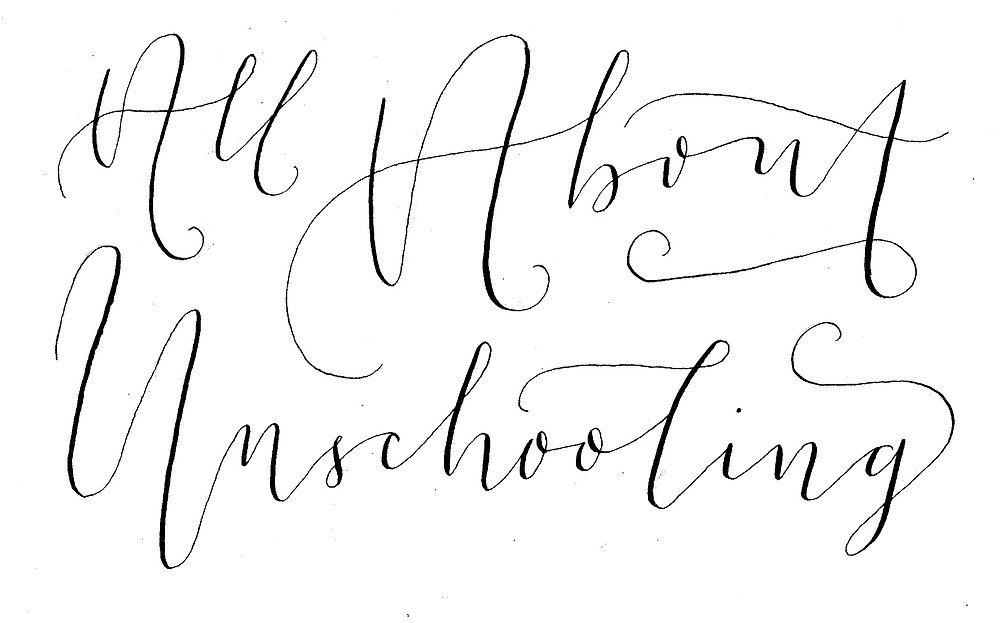 All About
Unschooling